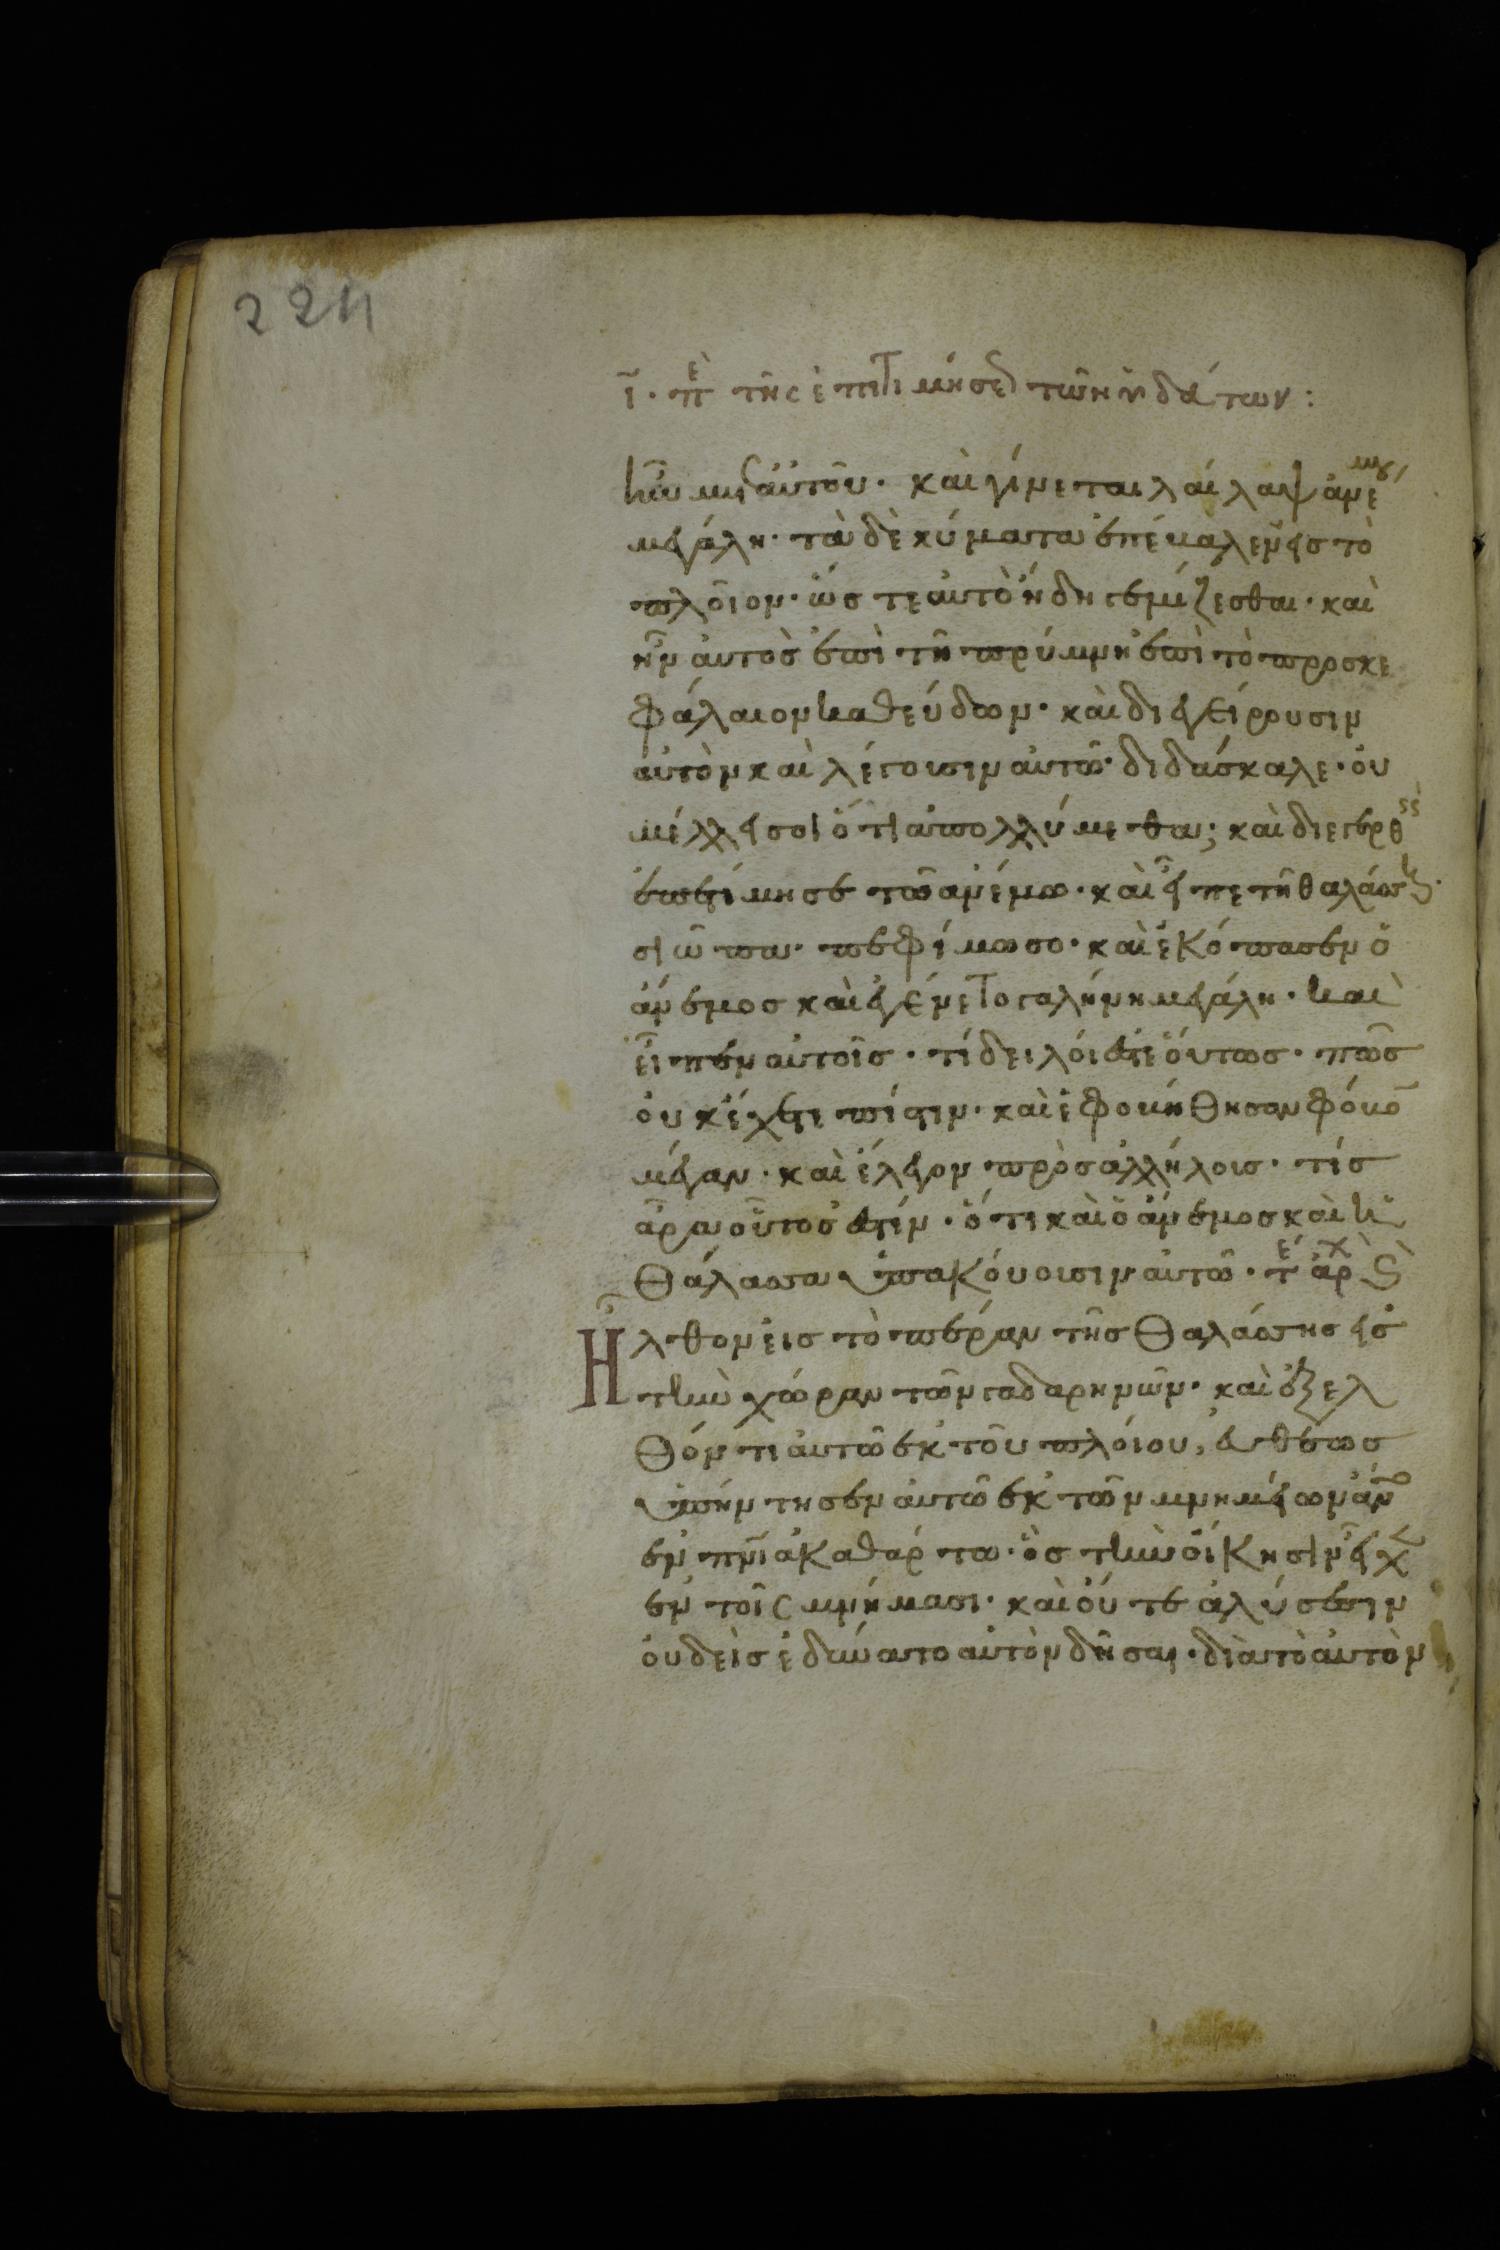 224
ι̅. πὲ τῆς ἐπιτιμήσε τῶν ὑδάτων:
ἦν μετ αὐτοῦ. καὶ γίνεται λαῖλαψ ἀνέμου
μεγάλη. τὰ δὲ κύματα ἐπέβαλεν εἰς τὸ
πλοῖον. ὥστε αὐτὸ ἤδη γεμίζεσθαι. καὶ
ἦν αὐτὸς ἐπὶ τῇ πρύμνῃ ἐπὶ τὸ προσκε
φάλαιον καθεύδων. καὶ διεγείρουσιν
αὐτὸν καὶ λέγουσιν αὐτῷ. διδάσκαλε. οὐ
μέλλει σοι ὅτι ἀπολλύμεθα; καὶ διεγερθεὶς
ἐπετίμησε τῷ ἀνέμῳ. καὶ εἶπε τῇ θαλάσσῃ.
σιῶπα. πεφίμωσο. καὶ ἐκόπασεν ὁ
ἄνεμος καὶ ἐγένετο γαλήνη μεγάλη. καὶ
εἶπεν αὐτοῖς. τί δειλοί ἐστε οὕτως. πῶς
οὐκ ἔχετε πίστιν. καὶ ἐφοβήθησαν φόβον
μέγαν. καὶ ἔλεγον πρὸς ἀλλήλοις. τίς
ἆρα οὗτός ἐστίν. ὅτι καὶ ὁ ἄνεμος καὶ ἡ
θάλασσα ὑπακούουσιν αὐτῷ. τέ ἀρχ ς
Ἦλθον εἰς τὸ πέραν τῆς θαλάσσης εἰς
τὴν χώραν τῶν γαδαρηνῶν. καὶ ἐξελ
θόντι αὐτῷ ἐκ τοῦ πλοίου, εὐθέως
ὑπήντησεν αὐτῷ ἐκ τῶν μνημείων ἀνο̅ς
ἐν πνι̅ ἀκαθάρτῳ. ὃς τὴν οἴκησιν εἶχεν
ἐν τοῖς μνήμασι. καὶ οὔτε ἁλύσεσιν
οὐδεὶς ἐδύνατο αὐτὸν δῆσαι. διὰ τὸ αὐτὸν